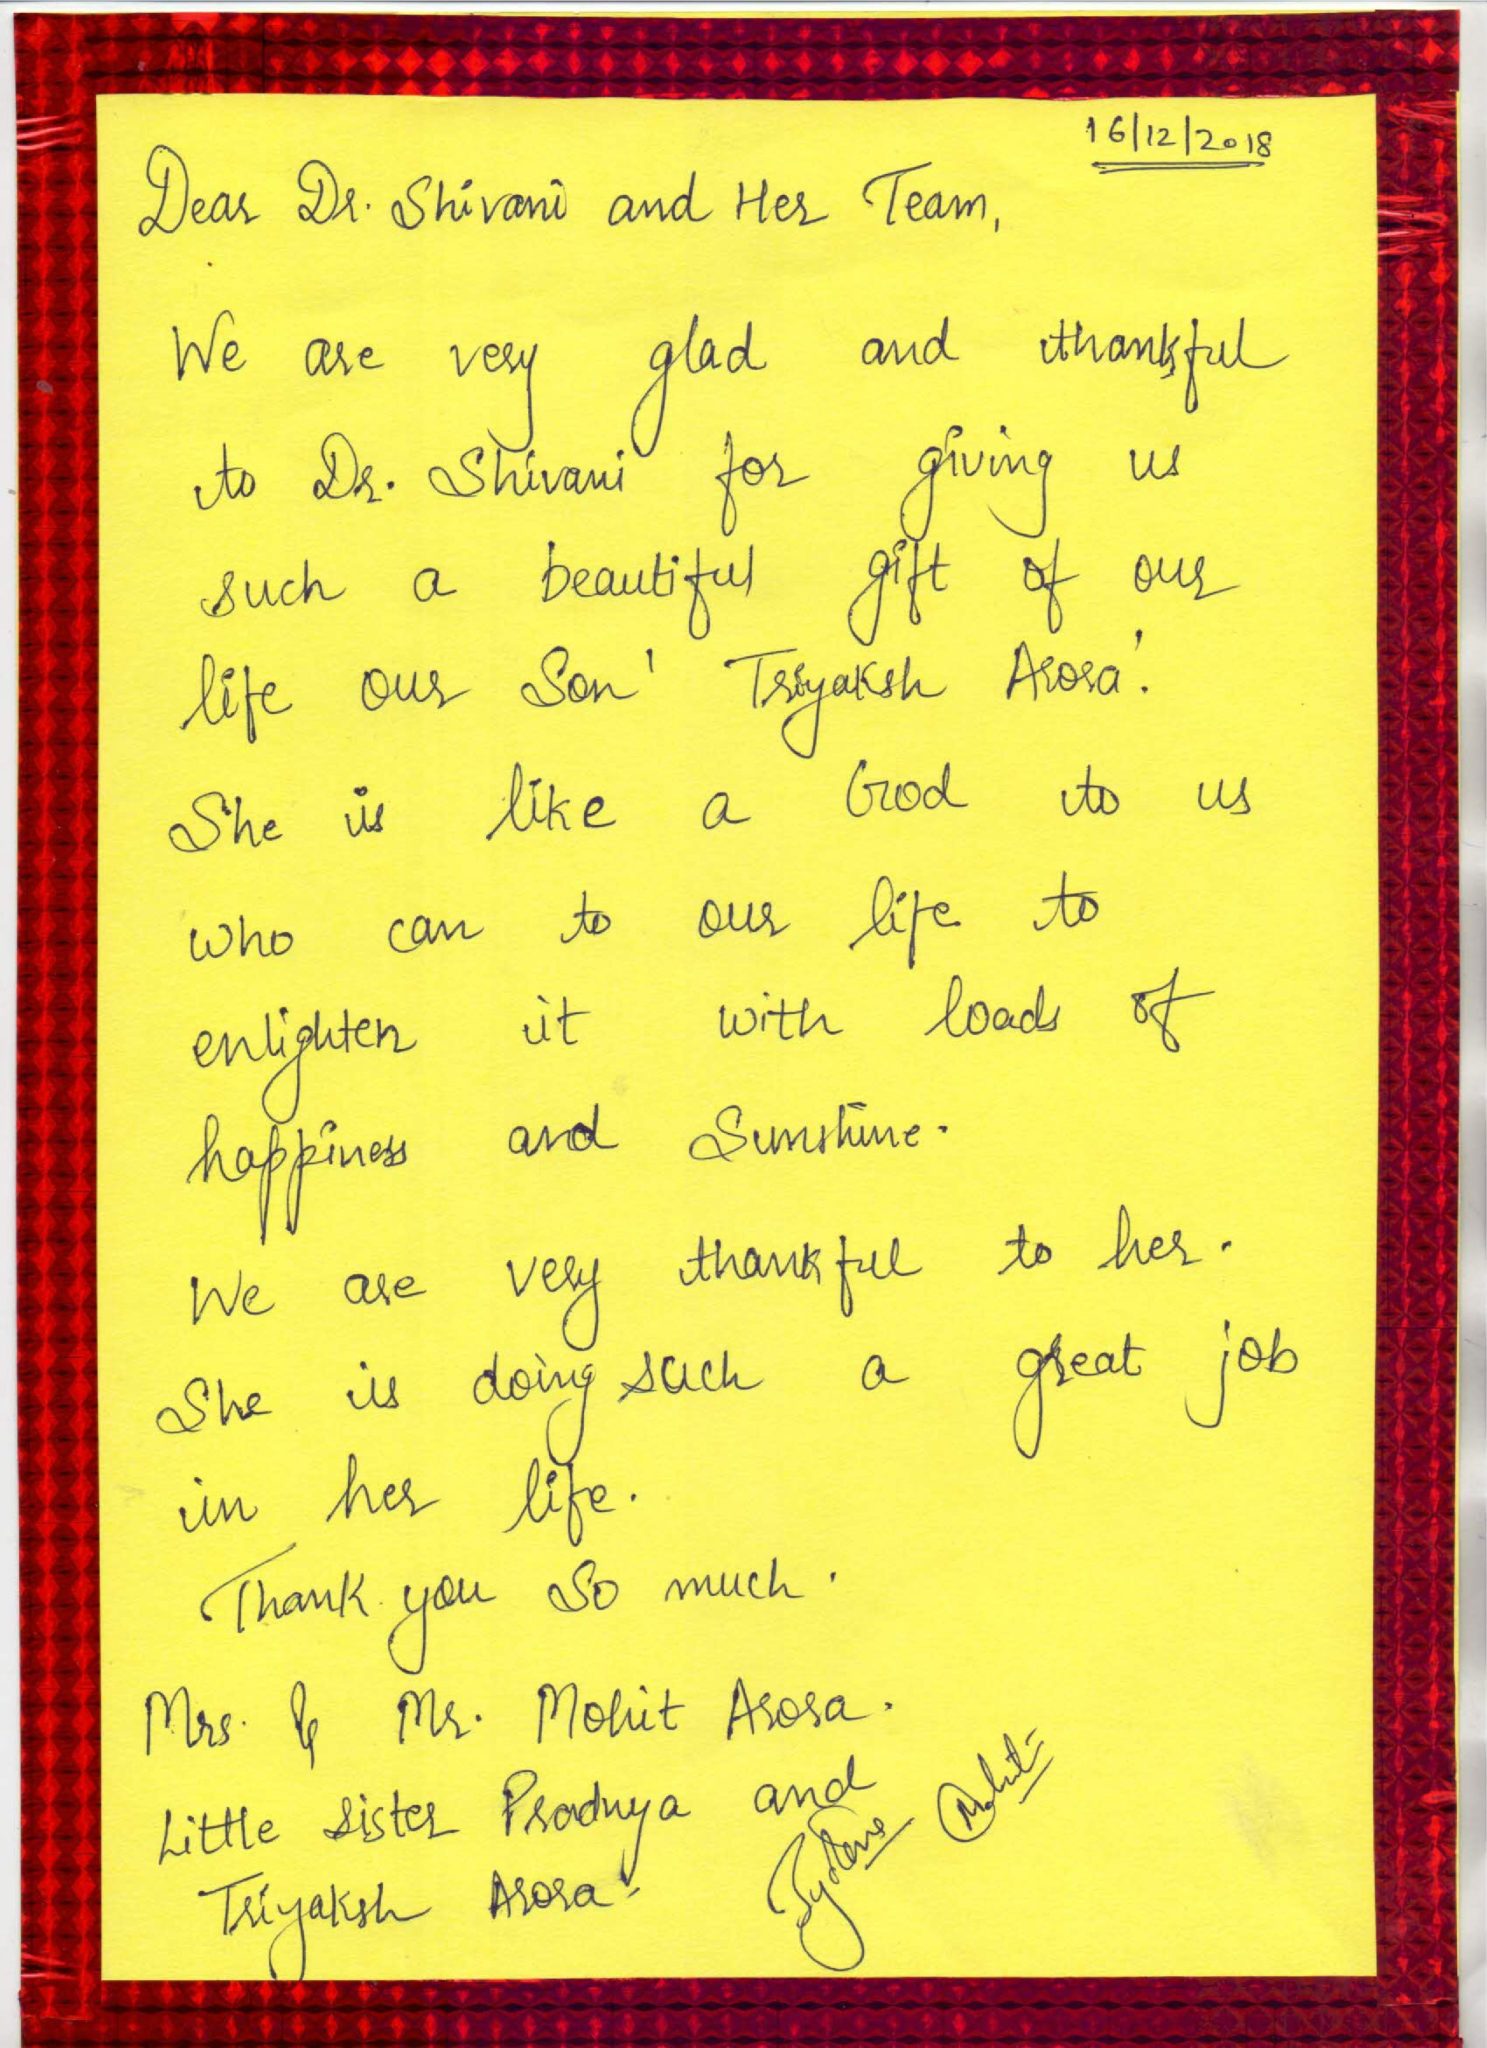 16/12/2018
Dear Dr. Shivani and Her Team,
We are very glad and thankful
to Dr. Shivani for giving us
such a beautiful gift of our
life our Son' Triyaksh Arora'.
She is like a God to us
who can to our life to
enlighten it with loads of
happiness and Sunshine.
We are very thankful to her.
She is doing such a great job
in her life.
Thank you So much.
Mrs. & Mr. Mohit Arora.
Little sister Pradnya and
Triyaksh Arora-
Mohit